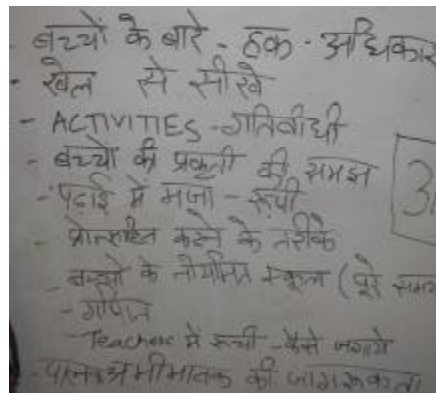 - बच्चों के बारे - हक - अधिकार
- खेल से सीखे
- ACTIVITIES - गतिवीधी
- बच्चो की प्रकृती की समझ
- पढ़ाई में मजा - रूची
- प्रोत्साहित करने के तरीके
- के नीयमित स्कूल (पूरे समय
- Teachers में रूची - कैसे जगाये
- अभीभावक की जागरूकता